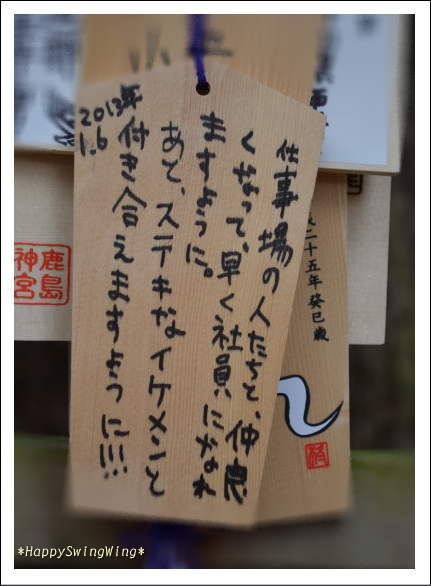 仕事場の人たちと、仲良
くなって、早く社員になれ
ますように。
あと、ステキなイケメンと
付き合えますように!!!
2013年
1.6
二十五年 癸巳歳
鹿島
神宮
*HappySwingWing*